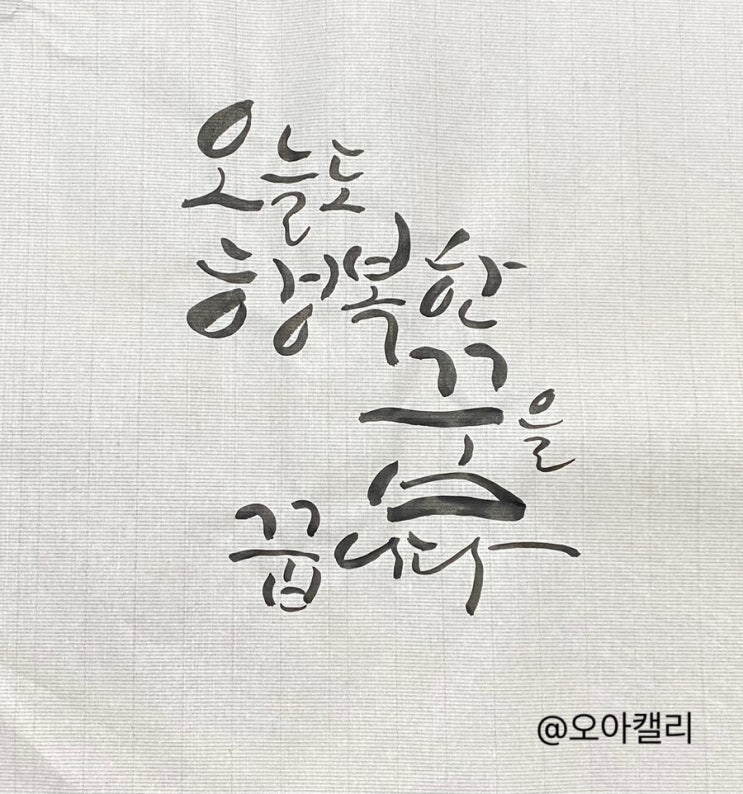 오늘도
행복한
꿈을
꿉니다
@오아캘리